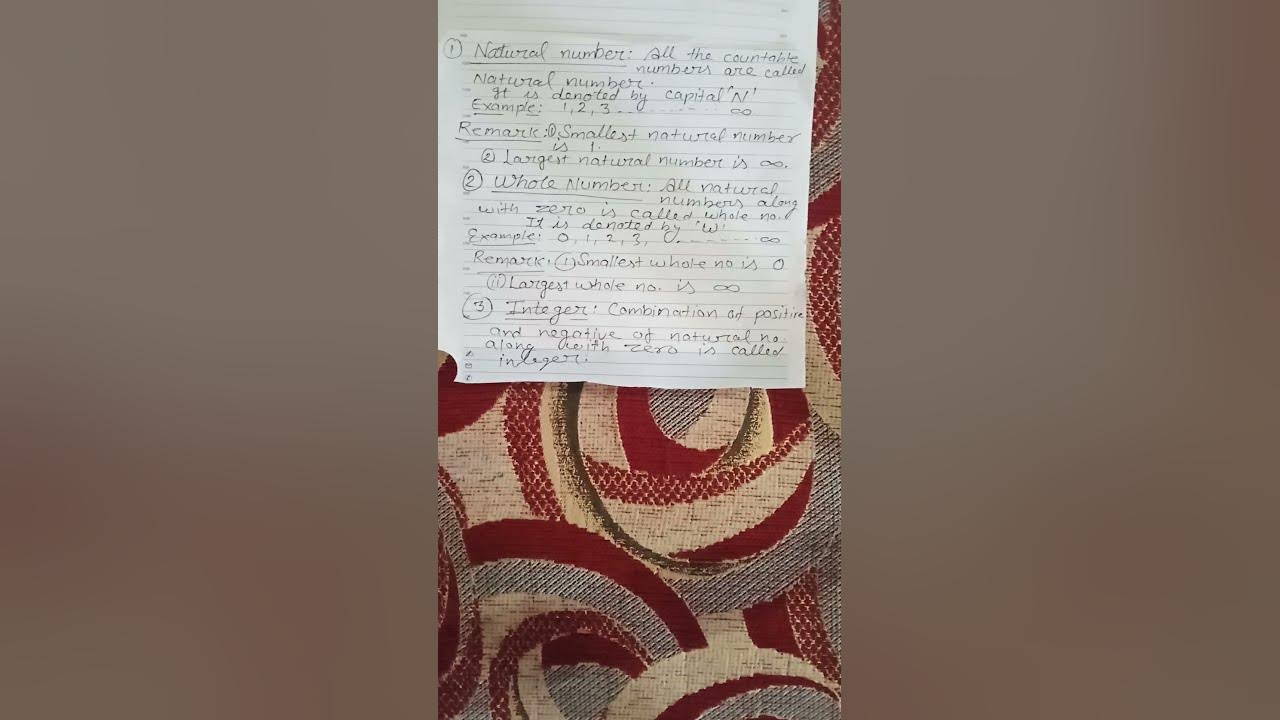 ① Natural number: All the countable
numbers are called
Natural number.
It is denoted by capital 'N'
Example: 1, 2, 3 ------------ ∞
Remark: ①. Smallest natural number
is 1.
② Largest natural number is ∞.
② Whole Number: All natural
numbers along
with zero is called whole no.
It is denoted by 'W'
Example: 0, 1, 2, 3, -------- ∞
Remark: ① Smallest whole no is 0
(ii) Largest whole no. is ∞
③ Integer: Combination of positive
and negative of natural no.
along with zero is called
integer.